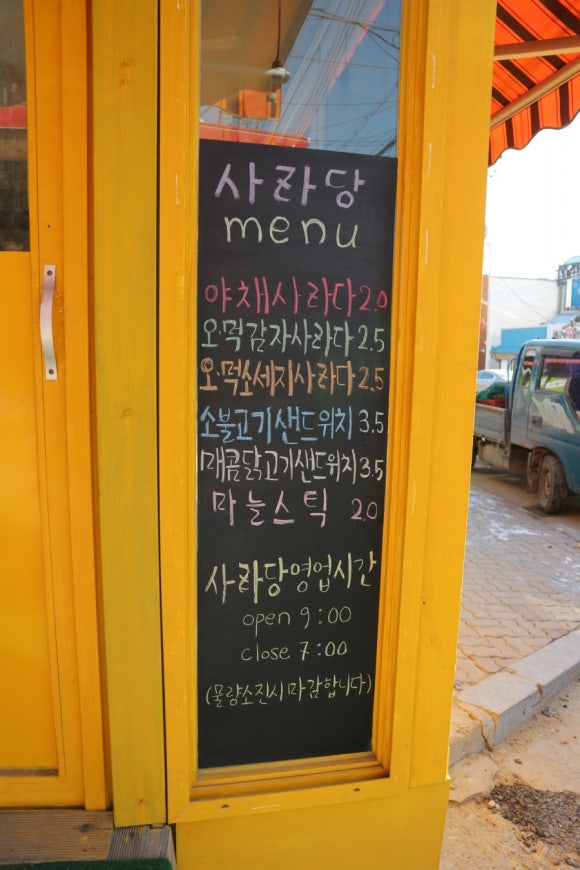 사라당
menu
야채사라다 2.0
오·떡감자사라다 2.5
오·떡소세지사라다 2.5
소불고기샌드위치 3.5
매콤닭고기샌드위치 3.5
마늘스틱 2.0
사라당영업시간
open 9:00
close 7:00
(물량소진시마감합니다)